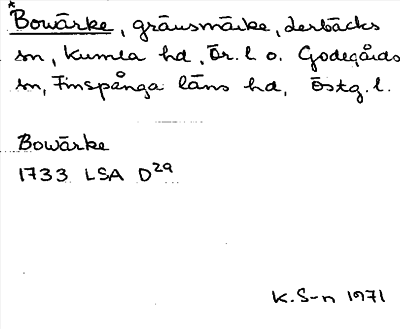 *Bowärke, gränsmärke, Lerbäcks
sn, Kumla hd, Ör. l o. Godegårds
sn, Finspånga läns hd, Östg. l.
Bowärke
1733 LSA D29
K. S-n 1971